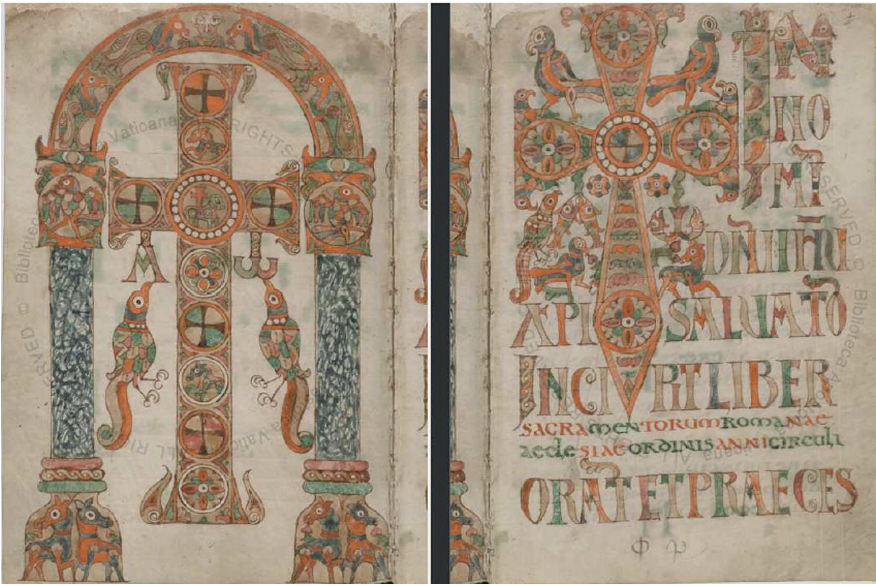 A Ɯ
IN
NO
MĪ
DÑI
XPI SALUATO
INCIPIT LIBER
SACRAMENTORUM ROMANAE
aecleSIAE ORDINIS ANNI CIRCULI
ORATE ET PRAECES